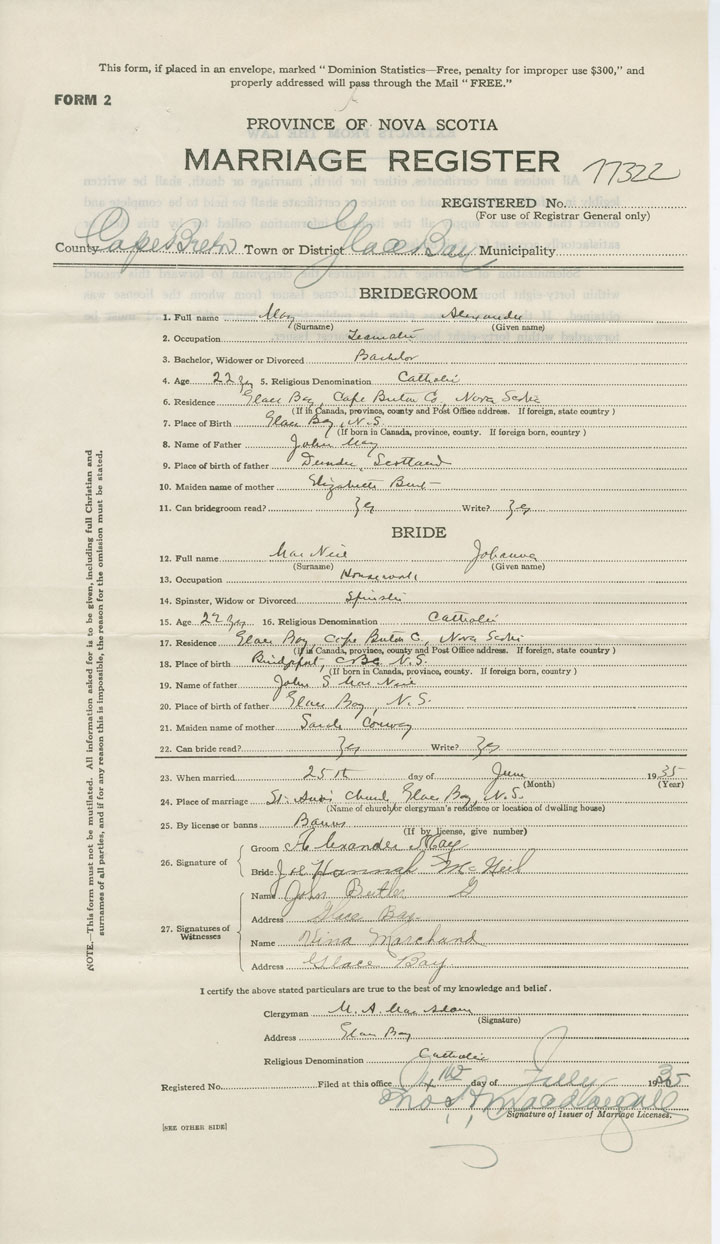 This form, if placed in an envelope, marked "Dominion Statistics—Free, penalty for improper use $300," and
properly addressed will pass through the Mail "FREE."
FORM 2
PROVINCE OF NOVA SCOTIA
MARRIAGE REGISTER 77322
REGISTERED No.
(For use of Registrar General only)
County Cape Breton Town or District Glace Bay Municipality
BRIDEGROOM
1. Full name May Alexander
(Surname) (Given name)
2. Occupation Teamster
3. Bachelor, Widower or Divorced Bachelor
4. Age 22 yrs 5. Religious Denomination Catholic
6. Residence Glace Bay, Cape Breton Co, Nova Scotia
(If in Canada, province, county and Post Office address. If foreign, state country)
7. Place of Birth Glace Bay, N.S.
(If born in Canada, province, county. If foreign born, country)
8. Name of Father John May
9. Place of birth of father Dundee, Scotland
10. Maiden name of mother Elizabeth
11. Can bridegroom read? Yes Write? Yes
BRIDE
12. Full name Mac Neil Johanna
(Surname) (Given name)
13. Occupation Housework
14. Spinster, Widow or Divorced Spinster
15. Age 22 yrs 16. Religious Denomination Catholic
17. Residence Glace Bay, Cape Breton C, Nova Scotia
(If in Canada, province, county and Post Office address. If foreign, state country)
18. Place of birth Bridgeport, C.B.C. N.S.
(If born in Canada, province, county. If foreign born, country)
19. Name of father John S Mac Neil
20. Place of birth of father Glace Bay, N.S.
21. Maiden name of mother Sarah Conway
22. Can bride read? Yes Write? Yes
23. When married 25th day of June 1935
(Month) (Year)
24. Place of marriage St. Ann's Church Glace Bay, N.S.
(Name of church or clergyman's residence or location of dwelling house)
25. By license or banns Banns
(If by license, give number)
26. Signature of Groom Alexander May
Bride Johannah McNeil
27. Signatures of Witnesses Name John Butler
Address Glace Bay
Name Nina Marchand
Address Glace Bay.
I certify the above stated particulars are true to the best of my knowledge and belief.
Clergyman M. A. Mac Adam
(Signature)
Address Glace Bay
Religious Denomination Catholic
Registered No. Filed at this office day of July 1935
Macdougall
Signature of Issuer of Marriage Licenses.
[SEE OTHER SIDE]
NOTE.—This form must not be mutilated. All information asked for is to be given, including full Christian and
surnames of all parties, and if for any reason this is impossible, the reason for the omission must be stated.